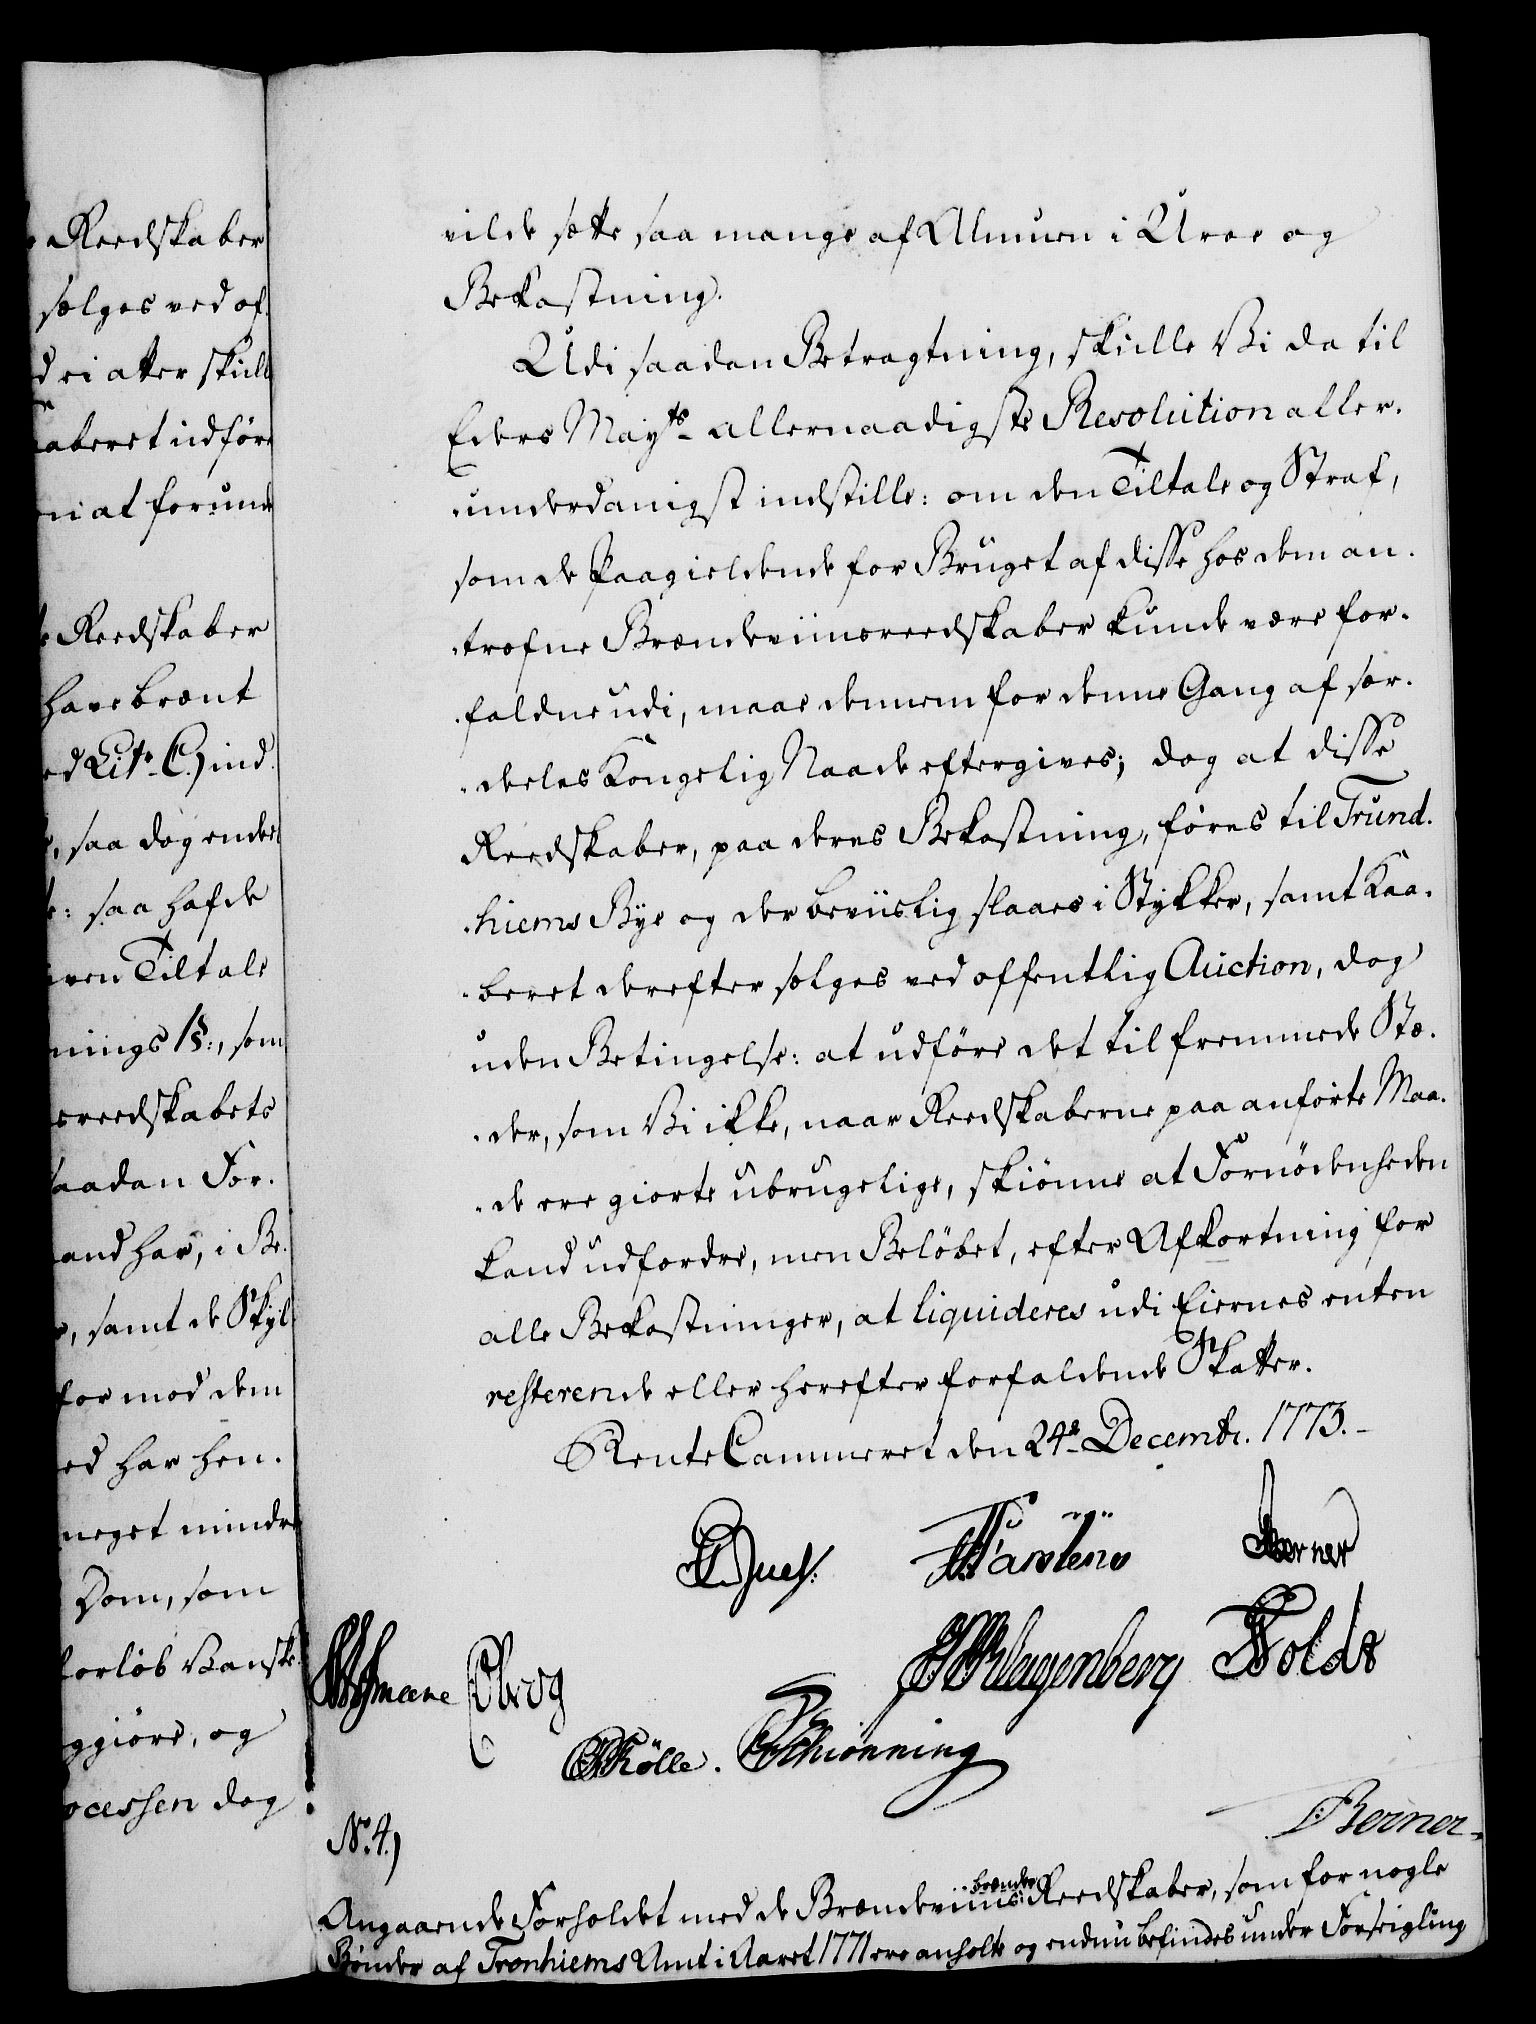 Reedskaber
sælges ved of-
ei atter skull
kaberet udføre
at forund
Reedskaber
have brænt
ed Litr. C.) ind-
, saa dog ender
: saa hafde
Tiltale
nings 1§:, som
reedskabets
saadan For-
and har, i Be-
, samt de Skyl-
for mod dem
ed har hen-
meget mindre
Dom, som
forløb Vanske-
ggiøre, og
ocessen dog
vilde sætte saa mange af Almuen i Uroe og
Bekostning.
Udi saadan Betragtning, skulle Vi da til
Eders Mayts allernaadigste Resolution aller-
-underdanigst indstille: om den Tiltale og Straf,
som de Paagieldende for Bruget af disse hos dem an-
-trofne Brændeviinsreedskaber kunde være for-
-faldne udi, maae dennem for denne Gang af sær-
-deeles Kongelig Naade eftergives; dog at disse
Reedskaber, paa deres Bekostning, føres til Trund-
-hiems Bye og der beviislig slaaes i Stykker, samt Kaa-
-beret derefter sælges ved offentlig Auction, dog
uden Betingelse: at udføre det til fremmede Stæ-
-der, som Vi ikke, naar Reedskaberne paa anførte Maa-
-de ere giorte ubrugelige, skiønne at Fornødenheden
kand udfordre, men Beløbet, efter Afkortning for
alle Bekostninger, at liquideres udi Eiernes enten
resterende eller herefter forfaldende Skatter.
RenteCammeret den 24de Decembr. 1773.
Juel.
Karstens
Berner
Klagenberg Holdt
Eberg
Kølle. Schiønning
Berner.
No. 4.)
Angaaende Forholdet med de Brændeviins brænde Reedskaber, som for nogle
Bønder af Tronhiems Amt i Aaret 1771 ere anholte og endnu befindes under Forseigling